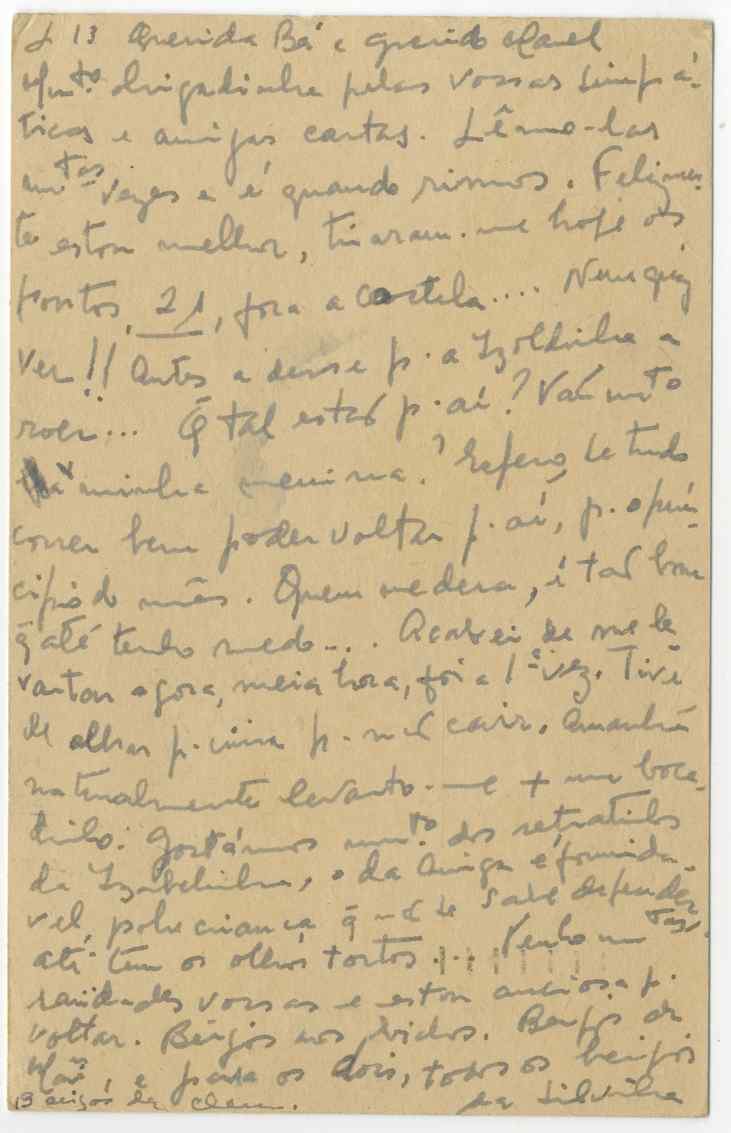 L 13 Querida Bá e querido Manel
Mto. obrigadinha pelas vossas simpá-
ticas e amigas cartas. Lêmo-las
mtas vezes e é quando rimos. Felizmen-
te estou melhor, tiraram-me hoje os
pontos, 21, fora a costela.... Nem quiz
ver!! Antes a desse p. a Izoldinha a
roer... Q̃ tal estás p. aí? Vai mto
a minha menina? Espero, se tudo
correr bem poder voltar p. aí, p. o prin-
cípio do mês. Quem me dera, é tão bom
q̃ até tenho medo... . Acabei de me le
vantar agora, meia hora, foi a 1ª vez. Tive
de olhar p. cima p. não cair. Amanhã
naturalmente levanto-me + um boca-
dinho. Gostámos muito. dos retratinhos
da Izabelinha, o da Amiga é formidá-
vel, pobre criança q̃ não se sabe defender
até tem os olhos tortos.... Tenho mtas.
saüdades vossas e estou anciosa p.
voltar. Beijos aos bidos. Beijos da
Mãe, e para os dois, todos os beijos
da Silvinha